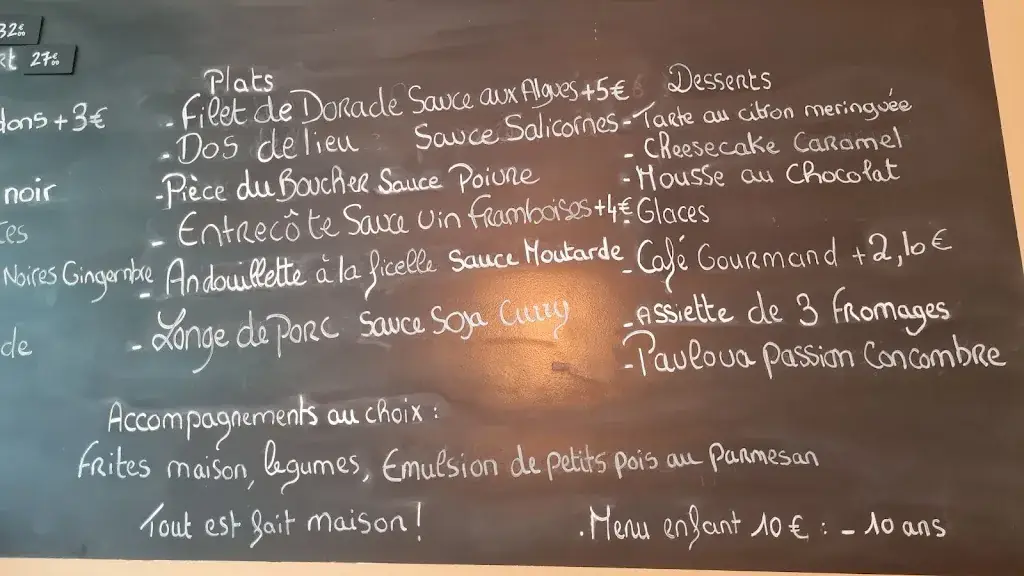 32€
rt 27€
dons +3€
noir
ces
Noires Gingembre
de
Plats
- Filet de Dorade Sauce aux Algues +5€
- Dos de lieu Sauce Salicornes
- Pièce du Boucher Sauce Poivre
- Entrecôte Sauce vin framboises +4€
- Andouillette à la ficelle Sauce Moutarde
- Longe de Porc Sauce Soja Curry
Desserts
- Tarte au citron meringuée
- Cheesecake Caramel
- Mousse au Chocolat
Glaces
- Café Gourmand +2,10€
- Assiette de 3 fromages
- Pavlova Passion Concombre
Accompagnements au choix :
Frites maison, legumes, Emulsion de petits pois au Parmesan
Tout est fait maison !
. Menu enfant 10€ : - 10 ans